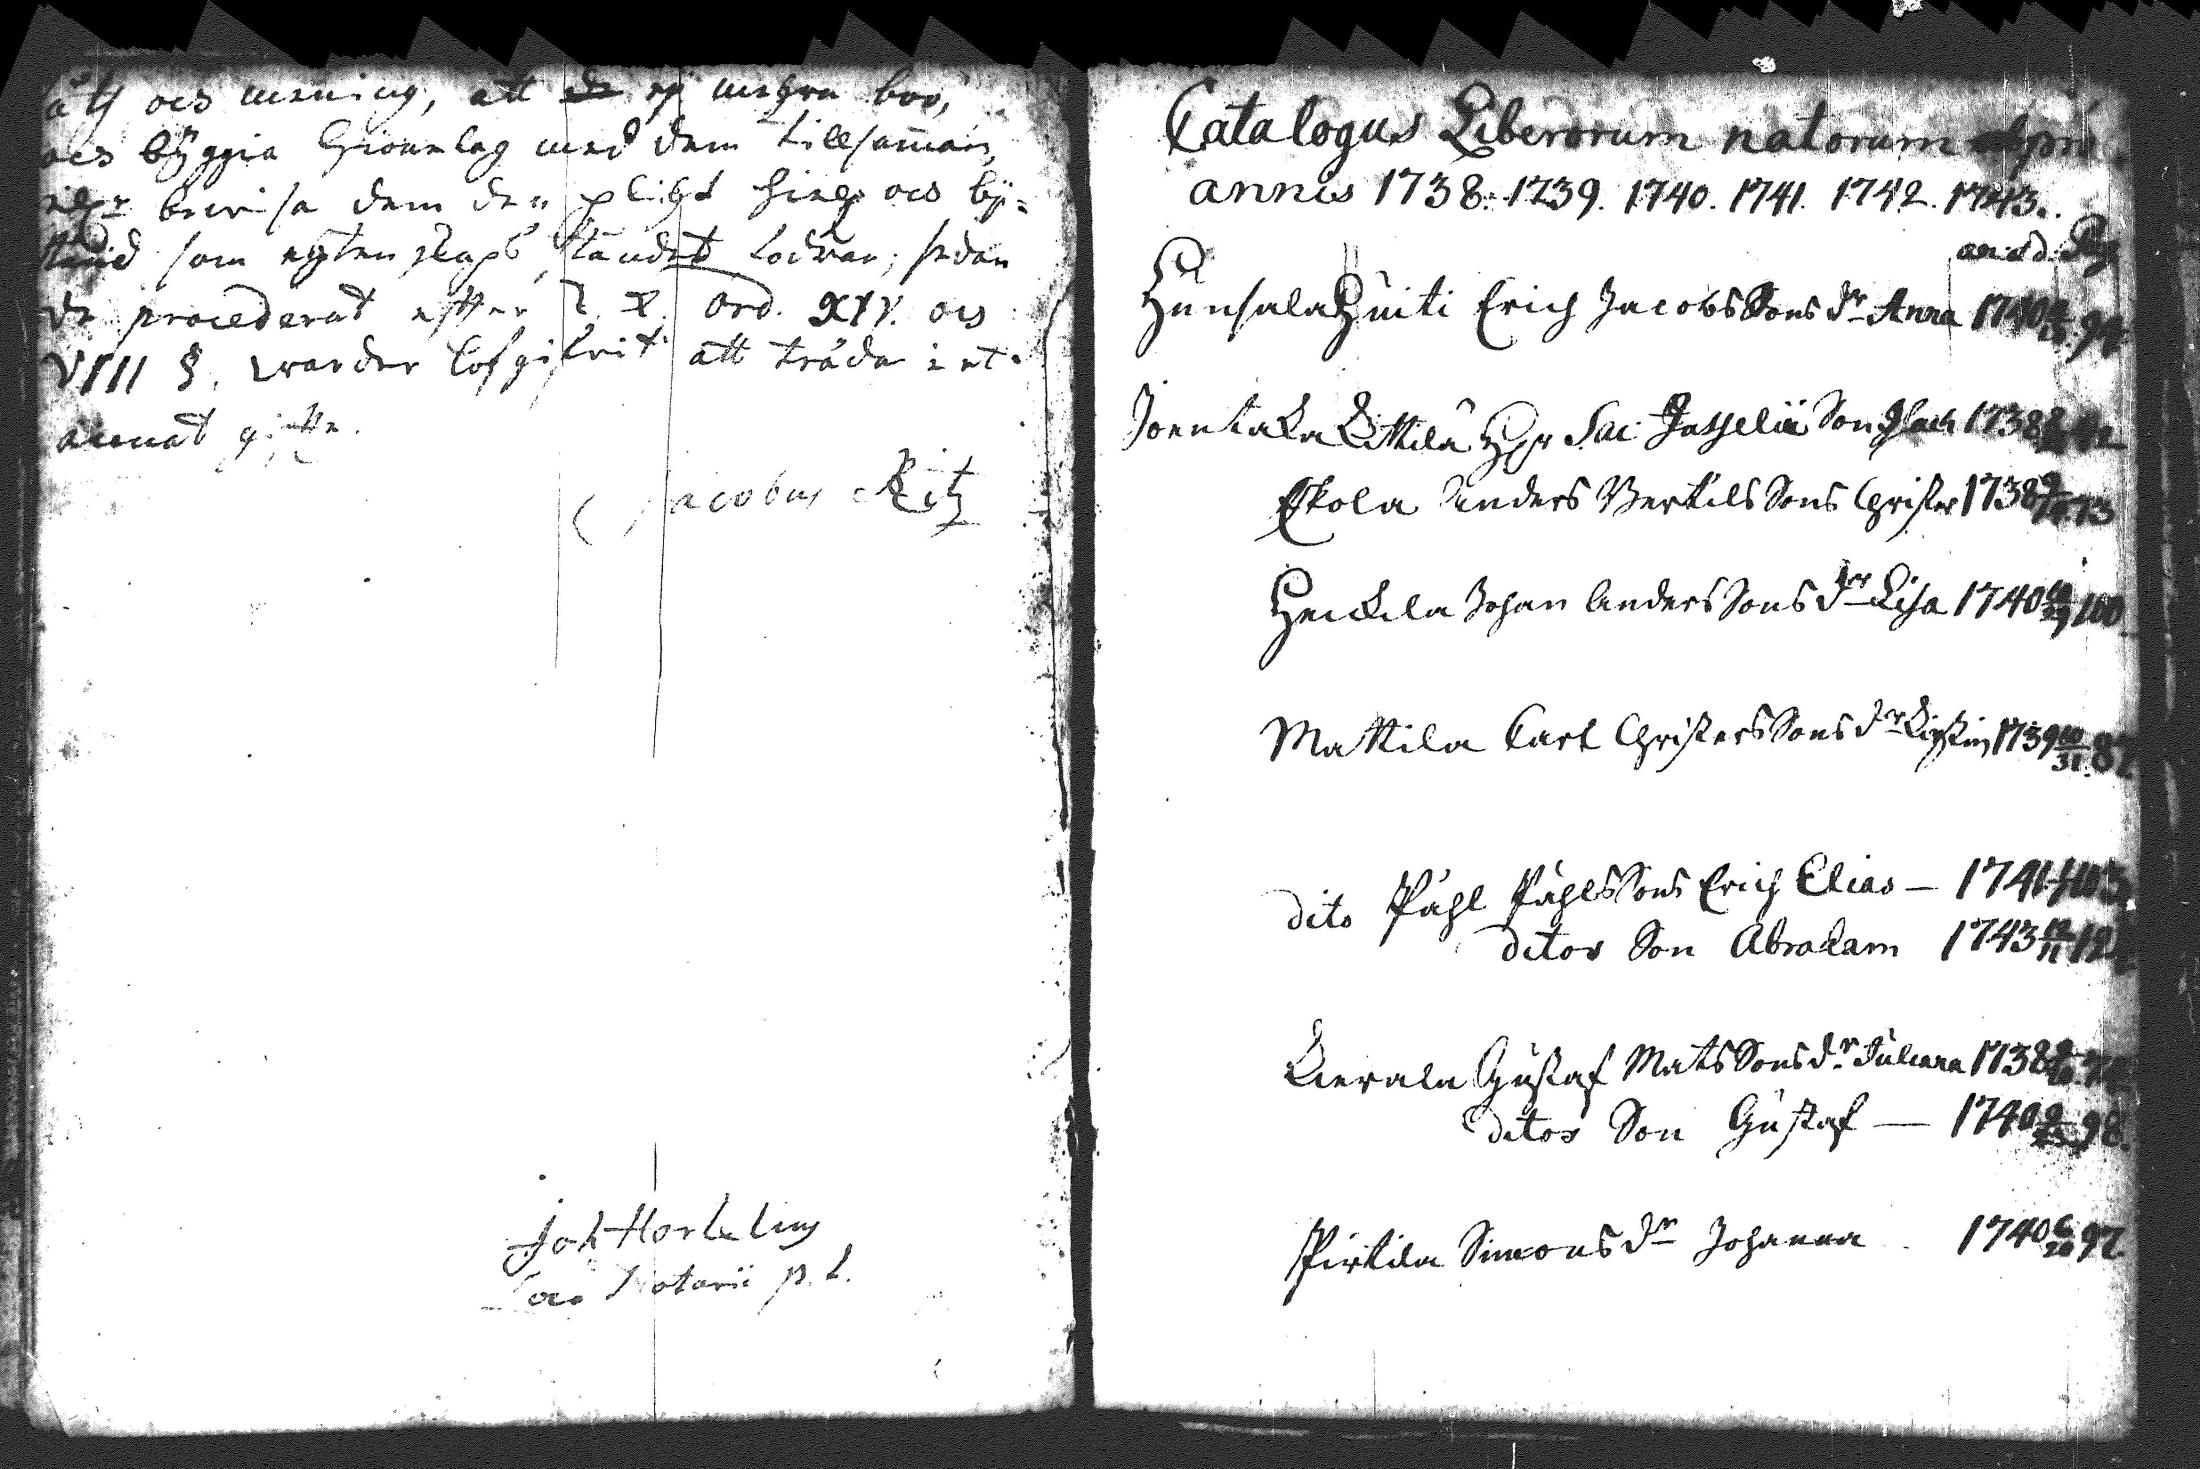 oth ocs mening, att de ej mehra boo,
ocs byggia hionelag med dem tillsamman,
eller bewisa dem den plicht hielp ocs by-
stånd som ägtenskaps ståndet fodrar; sedan
de procederat efter K. Ord. XIV. ocs
VIII §. warder lofgifwit att träda i et
annat gifte.
Jacobus Ritz
Joh Hortelius
Loco Notarii p. t.
Catalogus Liberorum natorum
annis 1738. 1739. 1740. 1741. 1742. 1743.
an. et d. Pag
Hunsala Huiti Erich Jacobs Sons dr Anna 1740 94
Joentaka Kittilä Hr Sac. Son 1738
Eskola Anders Bertils Sons Christer 1738 73
Heickila Johan Anders Sons dr Lisa 1740 10/29 100
Mattila Carl Christers Sons dr Kirstin 1739 10/31 87
dito Påhl Påhls Sons Erich Elias — 1741 103
ditos Son Abraham 1743 12/11
Kierala Gustaf Mats Sons dr Juliana 1738
ditos Son Gustaf — 1740 98.
Pirtila Simons dr Johanna 1740 6/20 97